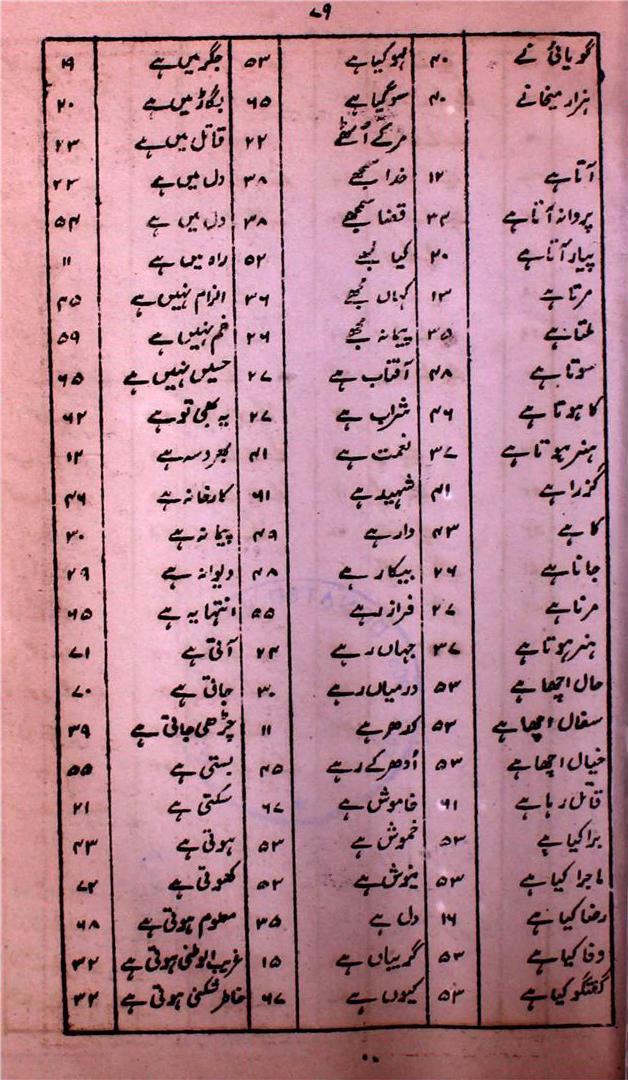 ۷۹
گویائی نے ۴۰ ہو گیا ہے ۵۳ جگر میں ہے ۱۹
ہزار میخانے ۴۰ سو گیا ہے ۶۵ بگاڑ میں ہے ۲۰
مر کے اُٹھے ۲۲ قاتل میں ہے ۲۳
آتا ہے ۱۲ خدا سمجھے ۳۸ دل میں ہے ۲۲
پروانہ آتا ہے ۳۲ قضا سمجھے ۳۸ دل میں ہے ۵۴
پیار آتا ہے ۲۰ کیا مجھے ۵۲ راہ میں ہے ۱۱
مرتا ہے ۱۳ کہاں مجھے ۳۶ الزام نہیں ہے ۴۵
ملتا ہے ۳۵ پیمانہ مجھے ۲۶ خم نہیں ہے ۵۹
سوتا ہے ۴۸ آفتاب ہے ۲۷ حسیں نہیں ہے ۶۵
کا ہوتا ہے ۴۶ شراب ہے ۲۷ یہ بھی تو ہے ۶۲
ہنر ہوتا ہے ۳۷ نعمت ہے ۴۱ بھروسہ ہے ۱۲
گزرا ہے ۴۱ شہید ہے ۶۱ کارخانہ ہے ۴۶
کا ہے ۴۳ دار ہے ۴۹ پیمانہ ہے ۳۰
جانا ہے ۲۶ بیکار ہے ۴۸ دیوانہ ہے ۲۹
مرنا ہے ۲۷ فراز رہے ۵۵ انتہا یہ ہے ۶۵
ہنر ہوتا ہے ۳۷ جہاں رہے ۲۴ آتی ہے ۷۱
حال اچھا ہے ۵۳ درمیاں رہے ۳۰ جاتی ہے ۷۰
سفال اچھا ہے ۵۳ کدھر ہے ۱۱ چڑھی جاتی ہے ۳۹
خیال اچھا ہے ۵۳ اُدھر کے رہے ۴۵ بستی ہے ۵۵
قاتل رہا ہے ۶۱ خاموش ہے ۶۷ سکتی ہے ۲۱
برا کیا ہے ۵۳ خموش ہے ۵۳ ہوتی ہے ۴۳
ماجرا کیا ہے ۵۳ مے نوش ہے ۵۲ کھوتی ہے ۷۲
رضا کیا ہے ۱۶ دل ہے ۳۵ معلوم ہوتی ہے ۶۸
وفا کیا ہے ۵۳ گریباں ہے ۱۵ غریب الوطنی ہوتی ہے ۳۲
گفتگو کیا ہے ۵۳ کیوں ہے ۶۷ خاطر شکنی ہوتی ہے ۳۲